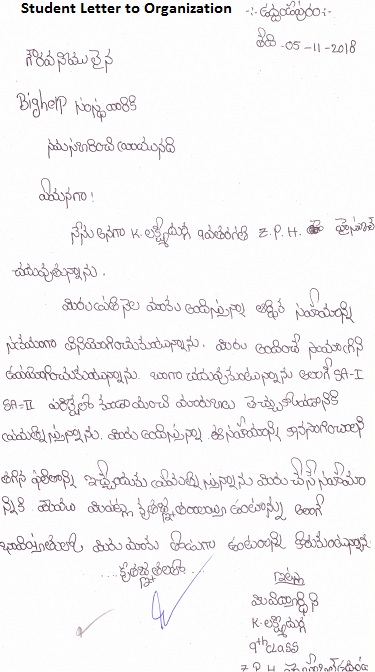 Student Letter to Organization
-:- ఉద్దయపురం -:-
తేది -05-11-2018
గౌరవనీయులైన
Bighelp సంస్థ వారికి
నమస్కరించి వ్రాయునది
ఏమనగా!
నేను అనగా K. లక్ష్మీదుర్గ 9వతరగతి Z.P.H హైస్కూల్
చదువుతున్నాను.
మీరు ప్రతినెల మాకు అందిస్తున్న ఆర్థిక సహాయాన్ని
సక్రమంగా వినియోగించుకుంటున్నాను. మీరు అందించే
ఉపయోగించుకుంటున్నాను. బాగా చదువుకుంటున్నాను అలాగే SA-I
SA-II పరీక్షల్లో కూడా మంచి మార్కులు తెచ్చుకోవడానికి
ప్రయత్నిస్తున్నాను. మీరు అందిస్తున్న ఈ సహాయాన్ని కొనసాగించాలని
తగిన ఫలితాన్ని ప్రయత్నిస్తున్నాను మీరు చేసే సహాయా
న్నికి మేము మీపట్ల కృతజ్ఞతలమై ఉంటాము అలాగే
భవిష్యత్తులో మీరు మాకు తోడుగా ఉండాలని కోరుకుంటున్నాను
....కృతజ్ఞతలతో...
ఇట్లు
మీ విద్యార్థిని
K. లక్ష్మీదుర్గ
9th class
Z.P.H